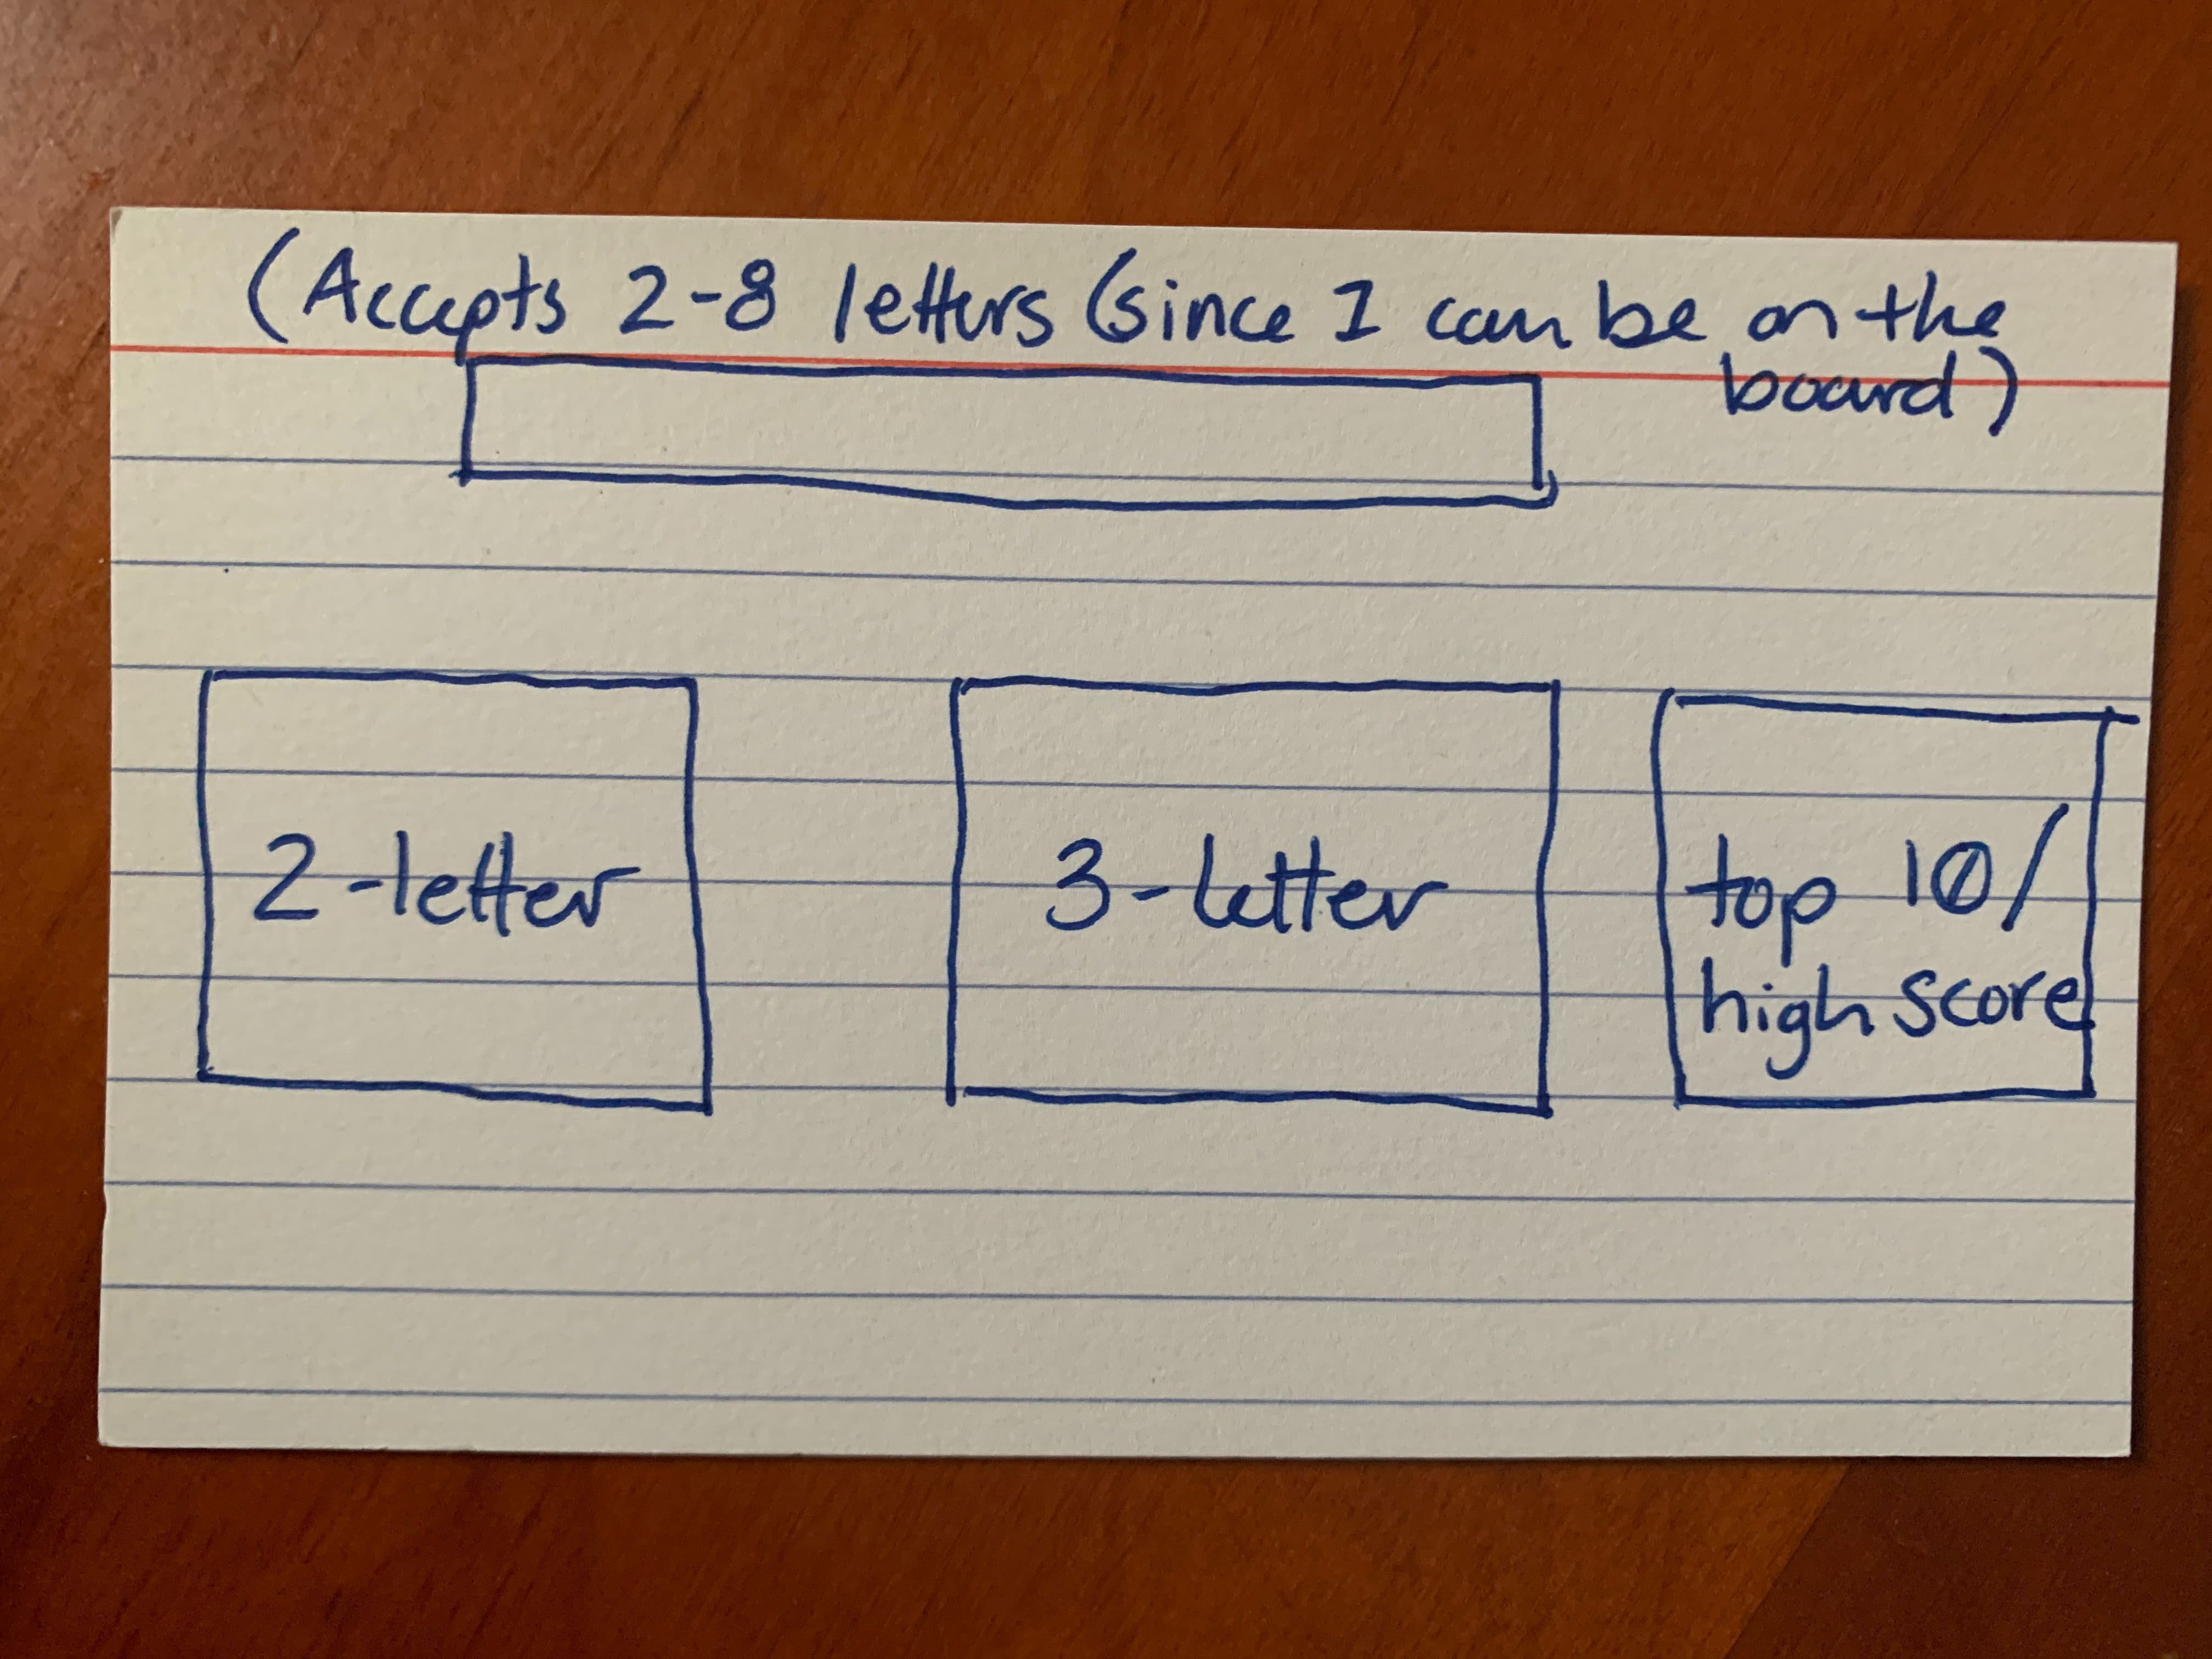 (Accepts 2-8 letters (since 1 can be on the
board)
2-letter
3-letter
top 10/
high score